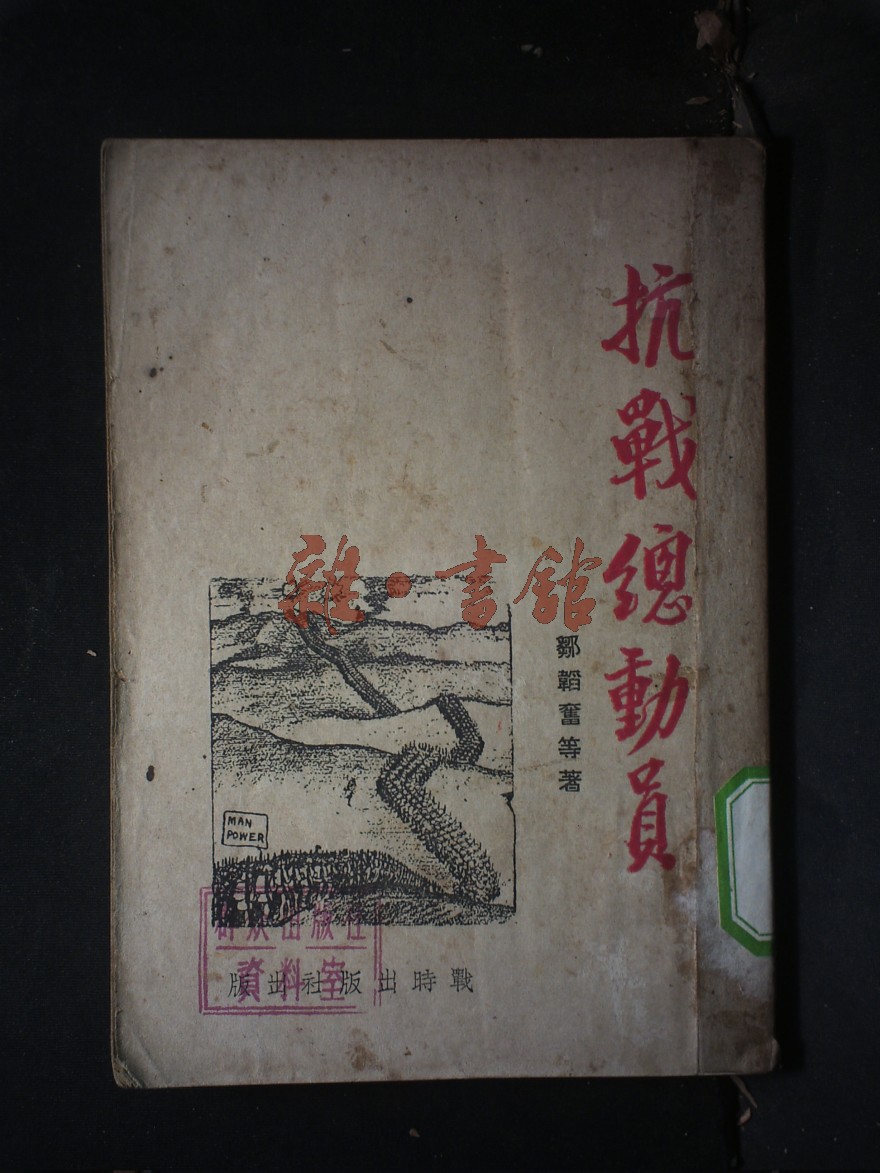 抗戰總動員
鄒韜奮等著
雜·書館
MAN
POWER
群众出版社
資料室
戰時出版社出版